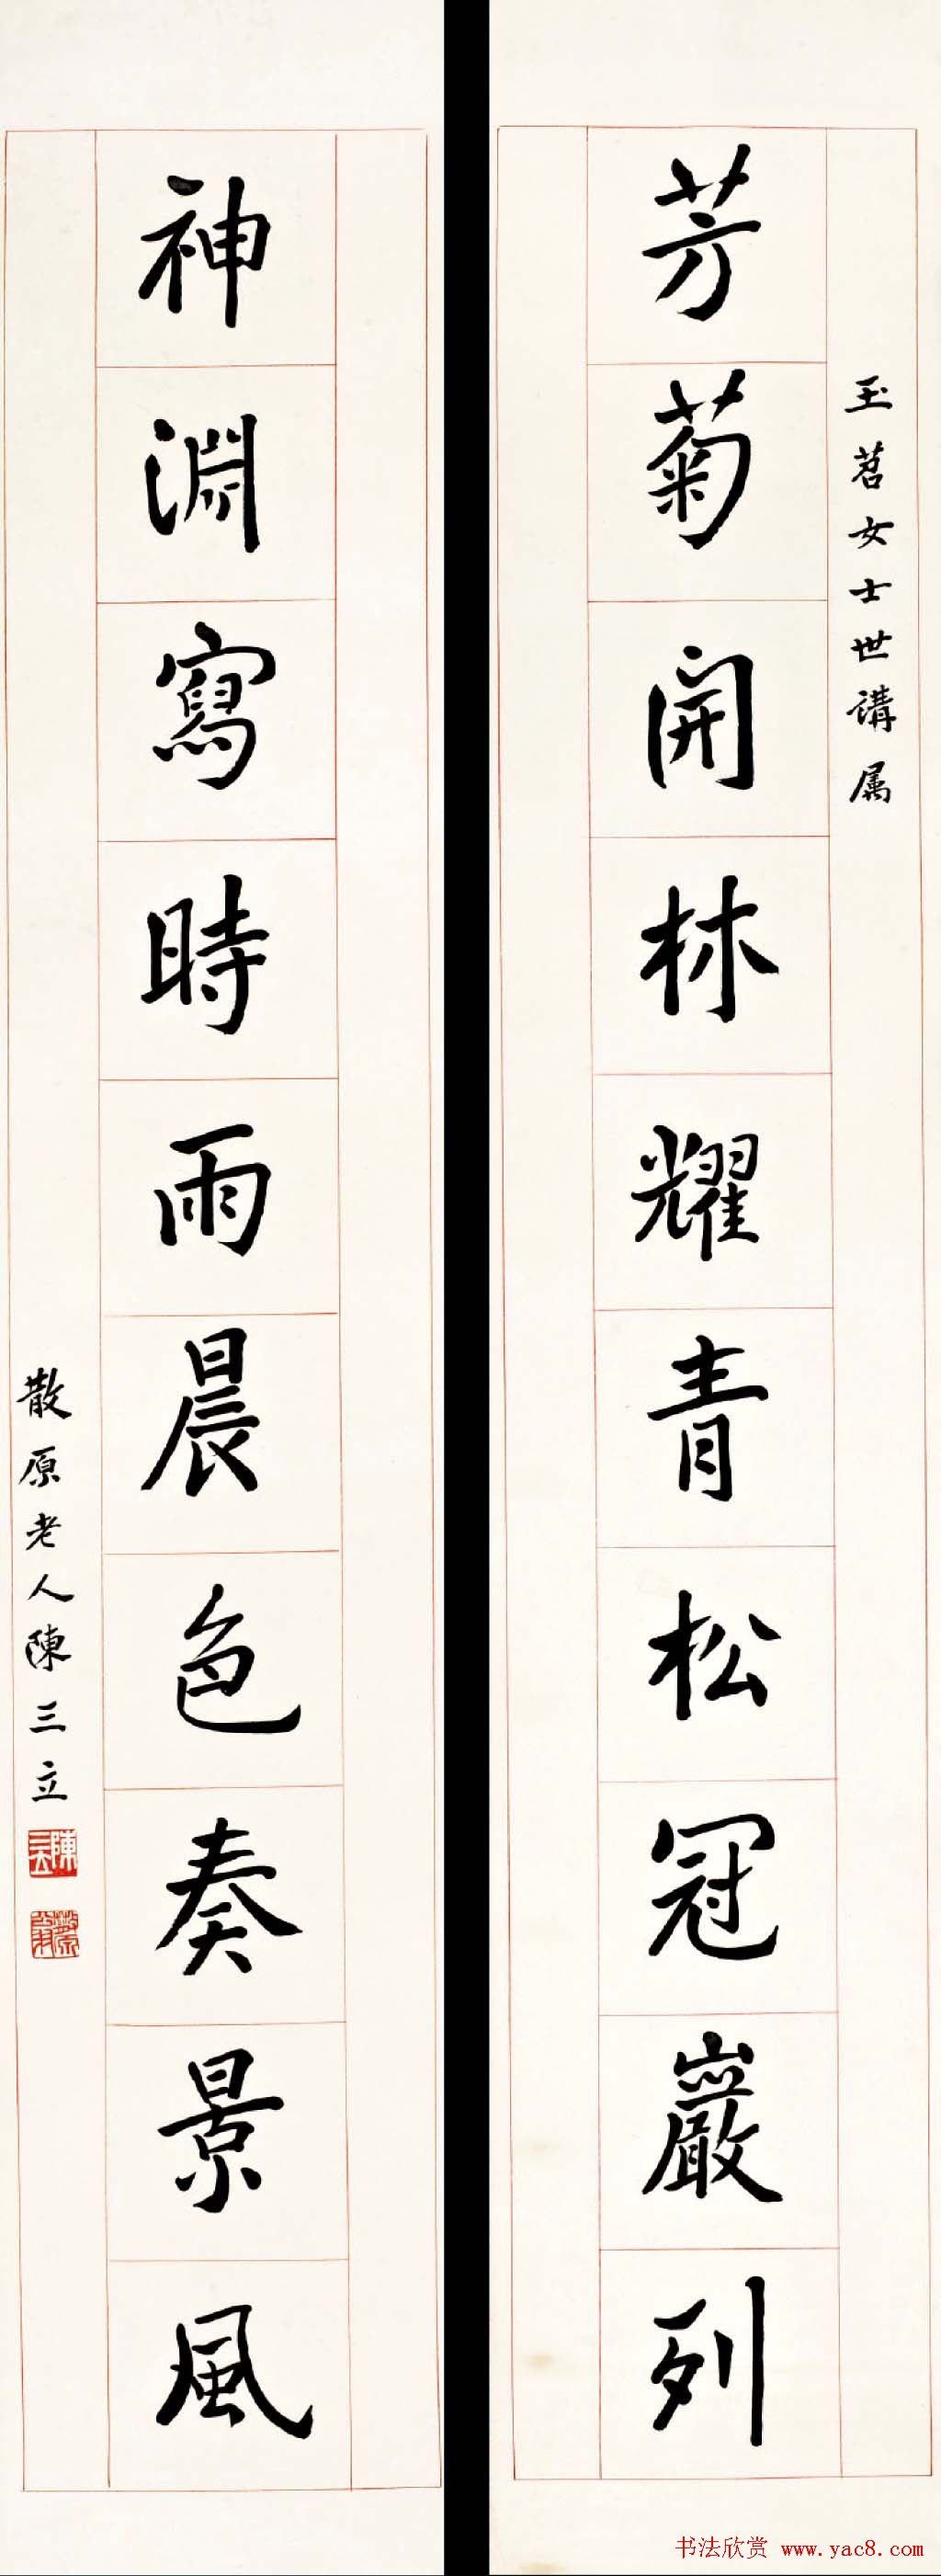 玉茗女士世講属
芳菊開林耀青松冠巖列
神淵寫時雨晨色奏景風
散原老人陳三立
陳三立
散原
书法欣赏 www.yac8.com